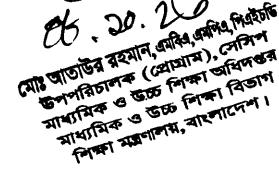 মোঃ আতাউর রহমান,এমবিএ,এমপিএ,পিএইচডি
উপপরিচালক (প্রোগ্রাম), সেসিপ
মাধ্যমিক ও উচ্চ শিক্ষা অধিদপ্তর
মাধ্যমিক ও উচ্চ শিক্ষা বিভাগ
শিক্ষা মন্ত্রণালয়, বাংলাদেশ।